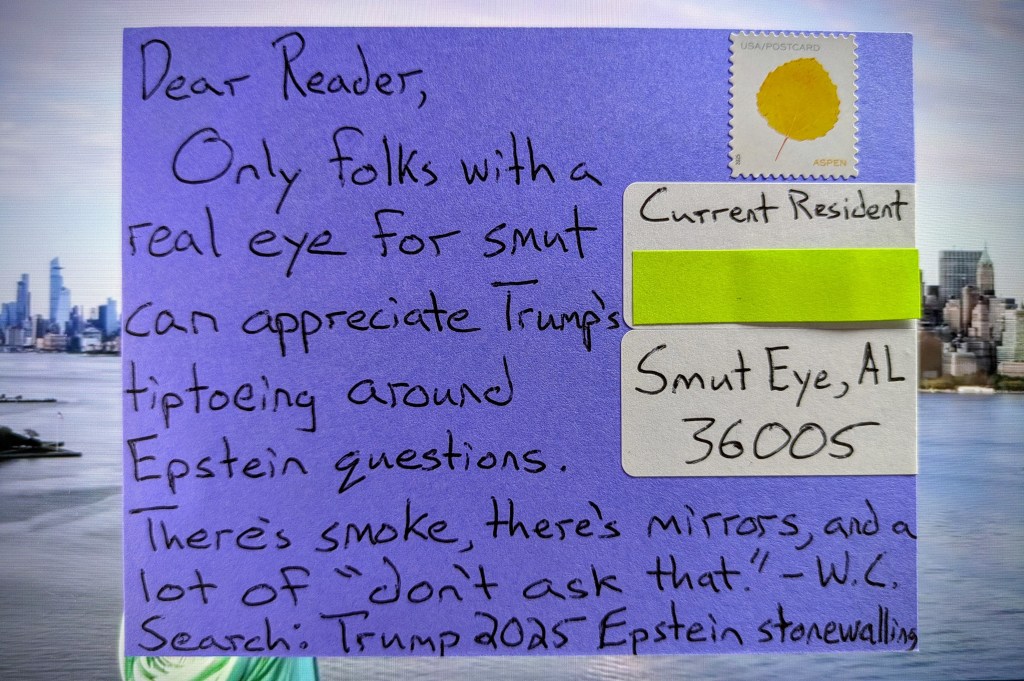 Dear Reader,
Only folks with a
real eye for smut
can appreciate Trump's
tiptoeing around
Epstein questions.
There's smoke, there's mirrors, and a
lot of "don't ask that." – W.C.
Search: Trump 2025 Epstein stonewalling
USA/POSTCARD
ASPEN
2025
Current Resident
Smut Eye, AL
36005